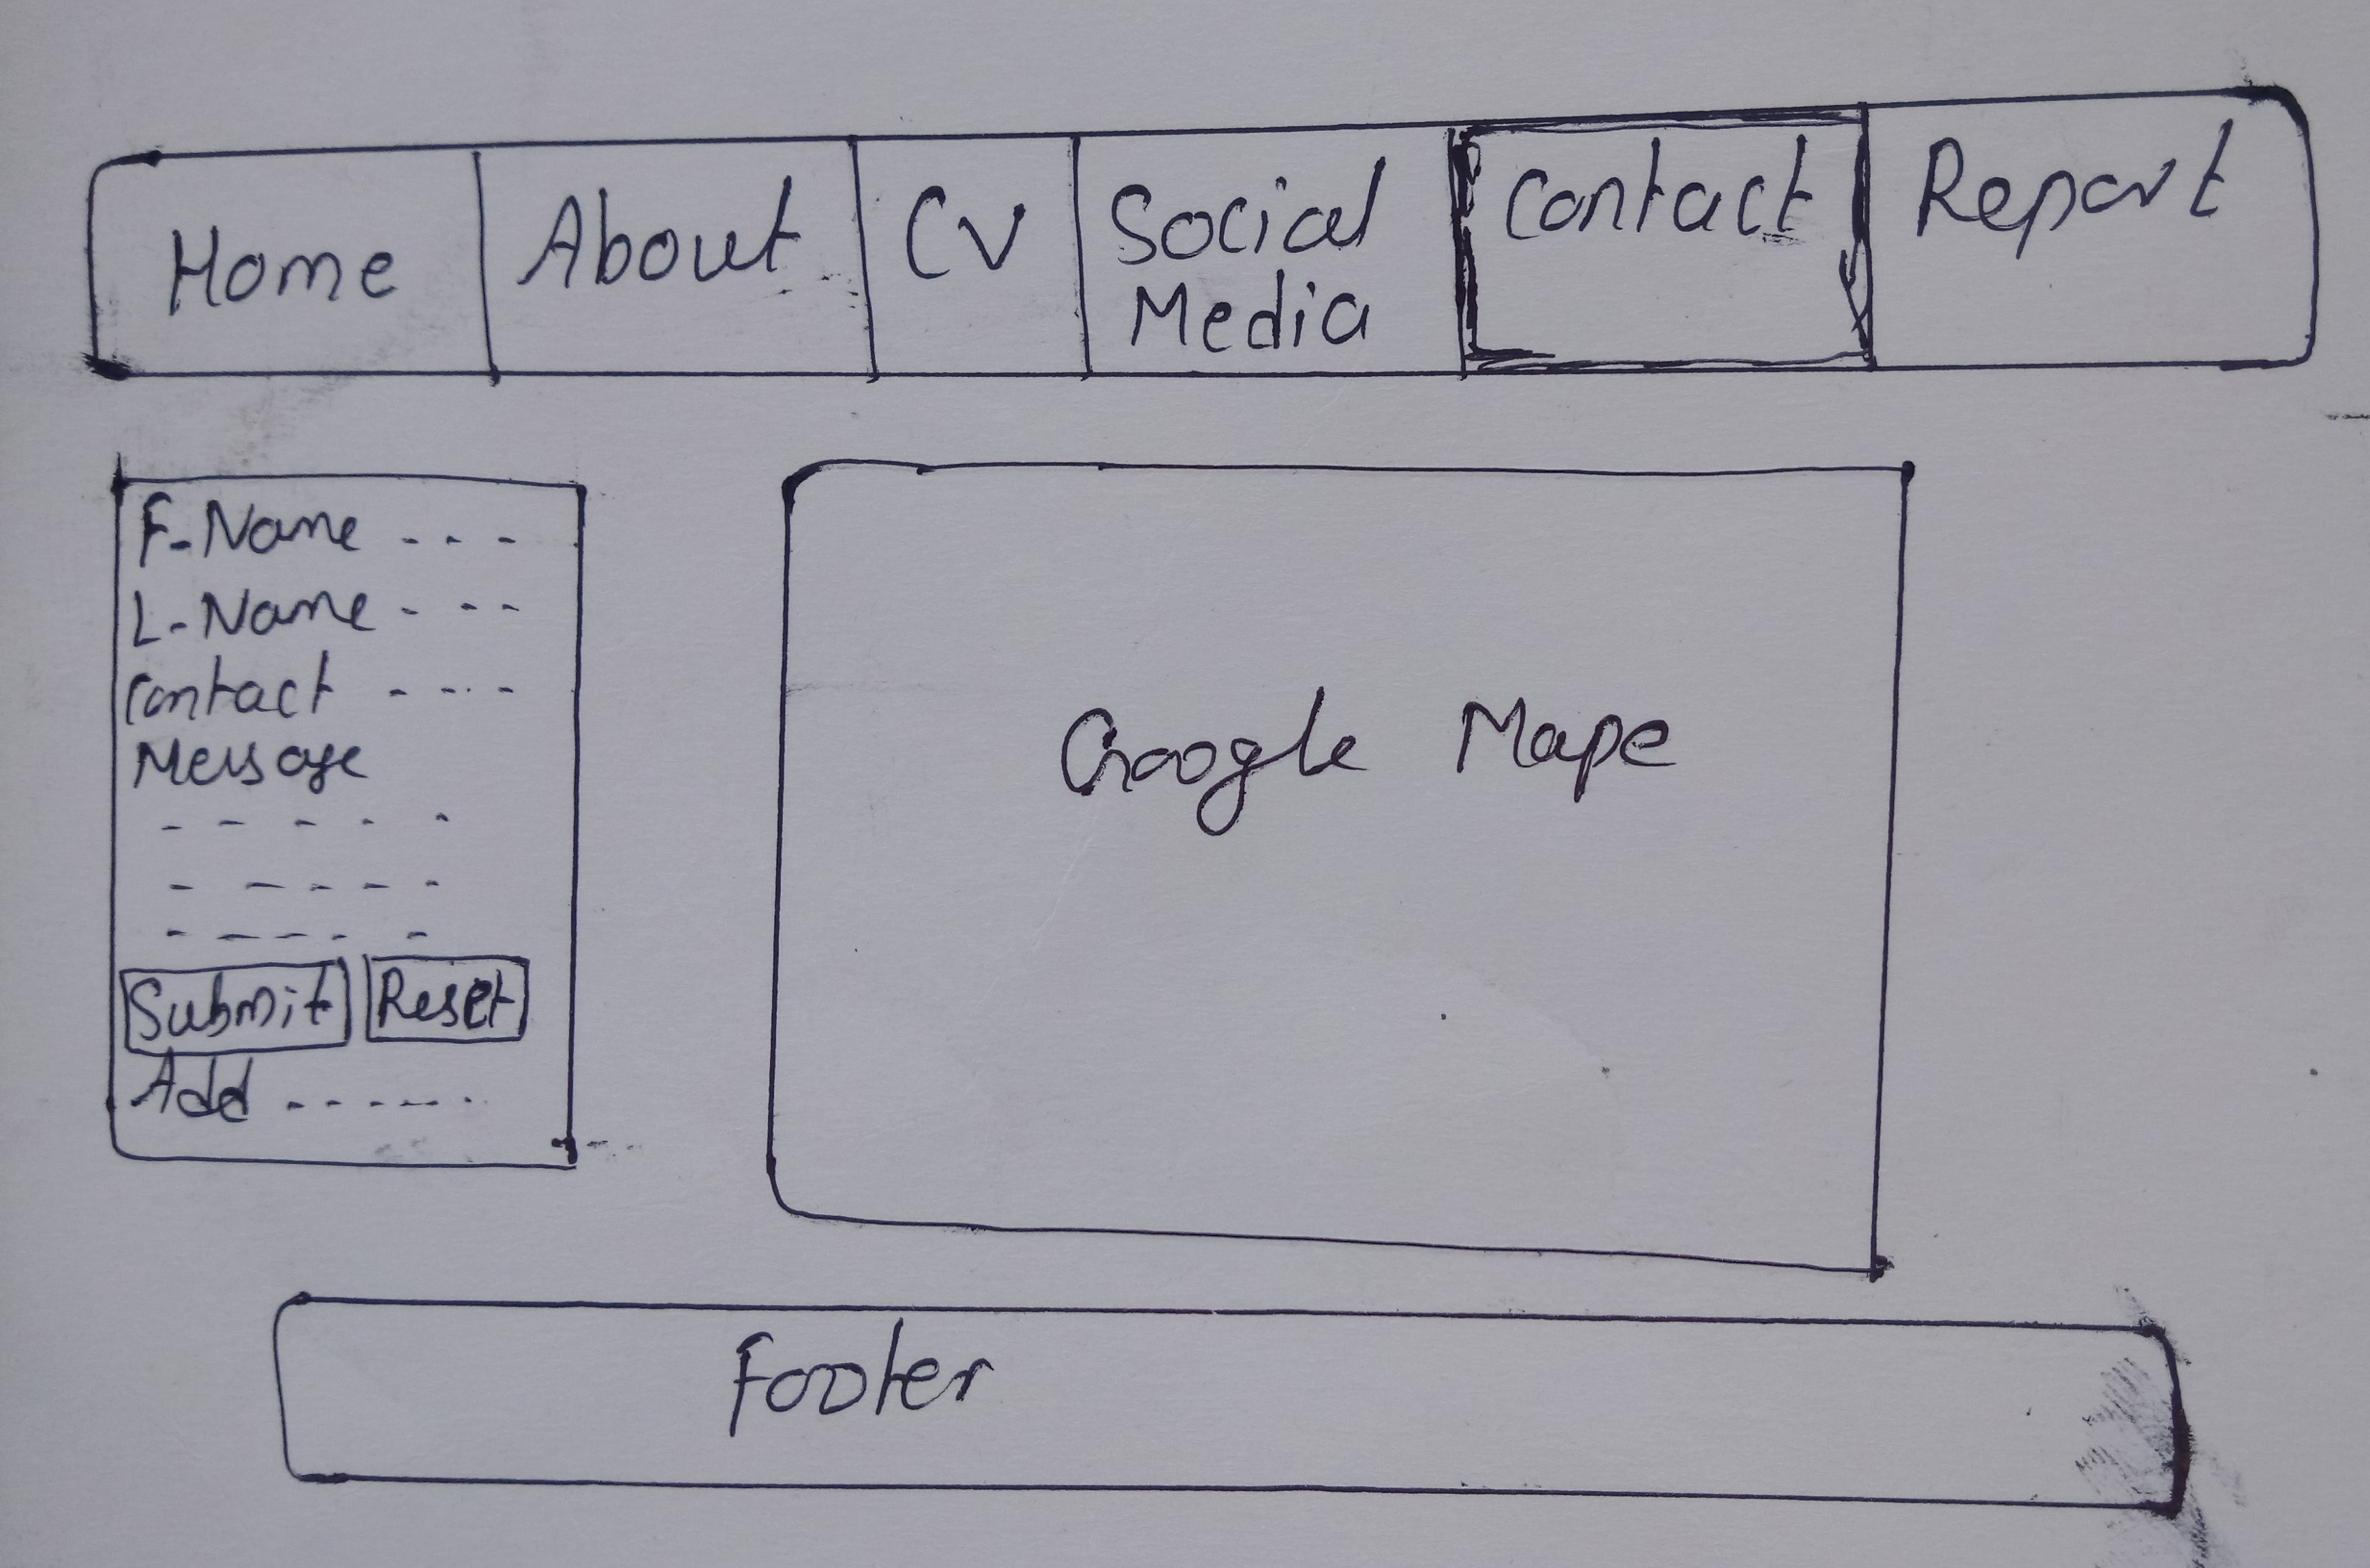 Home About CV Social Media Contact Report
F-Name - - -
L-Name - - -
Contact - - - -
Message
- - - - -
- - - - - -
- - - - - -
Submit Reset
Add - - - - - -
Google Mape
Footer